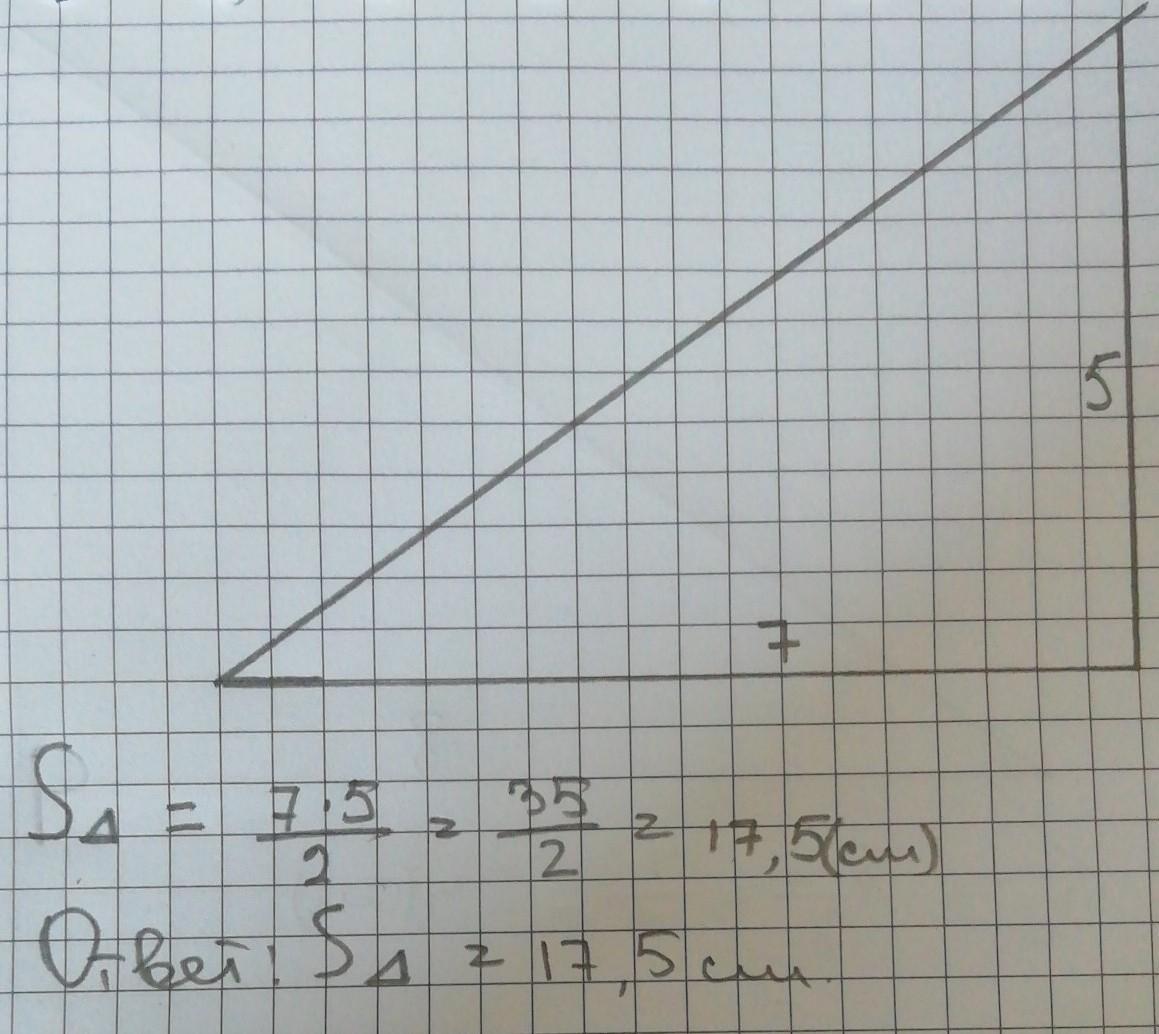 5
7
S△ = 7·5/2 = 35/2 = 17,5(см)
Ответ: S△ = 17,5 см.